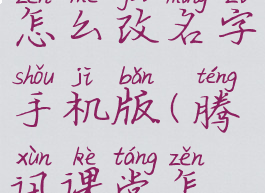 zěn me gǎi míng zì
怎么改名字
shǒu jī bǎn téng
手机版(腾
xùn kè táng zěn
讯课堂怎